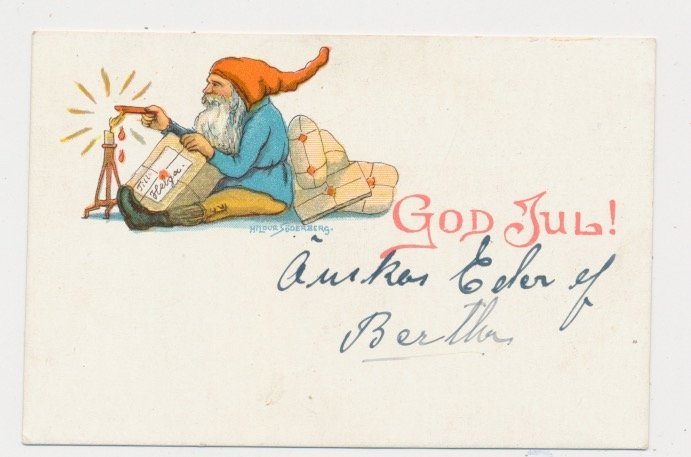 Till
Helga.
HILDUR SÖDERBERG.
GOD JUL!
Önskas Eder af
Bertha